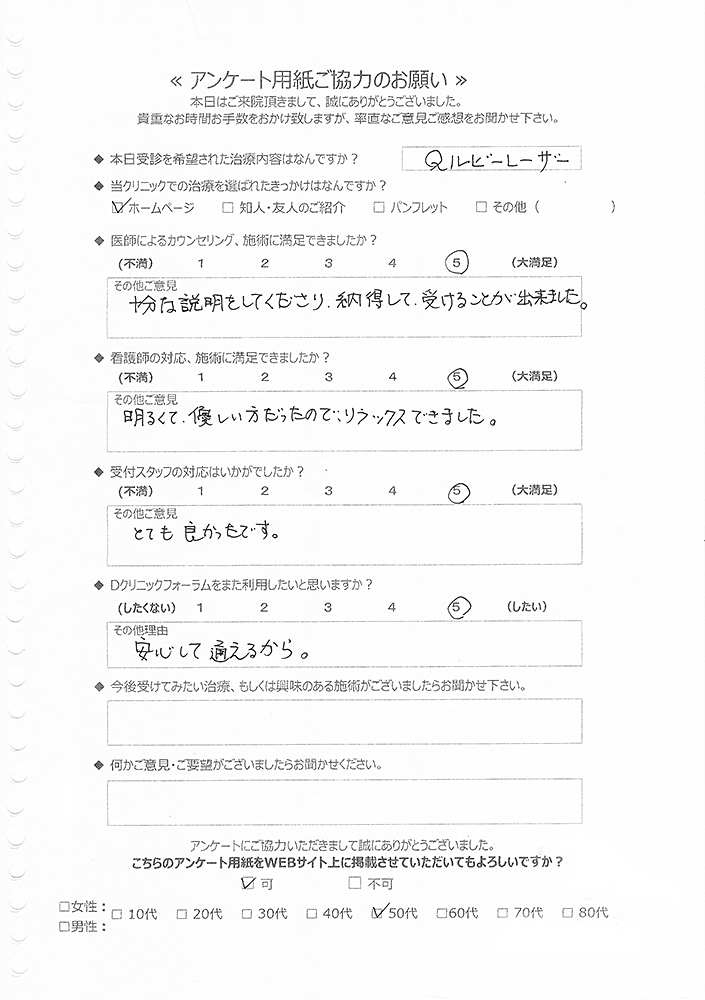 ≪ アンケート用紙ご協力のお願い ≫
本日はご来院頂きまして、誠にありがとうございました。
貴重なお時間お手数をおかけ致しますが、率直なご意見ご感想をお聞かせ下さい。
◆ 本日受診を希望された治療内容はなんですか？ Qルビーレーザー
◆ 当クリニックでの治療を選ばれたきっかけはなんですか？
☑ホームページ □ 知人・友人のご紹介 □ パンフレット □ その他（ ）
◆ 医師によるカウンセリング、施術に満足できましたか？
(不満) 1 2 3 4 5 (大満足)
その他ご意見
十分な説明をしてくださり、納得して、受けることが出来ました。
◆ 看護師の対応、施術に満足できましたか？
(不満) 1 2 3 4 5 (大満足)
その他ご意見
明るくて、優しい方だったので、リラックスできました。
◆ 受付スタッフの対応はいかがでしたか？
(不満) 1 2 3 4 5 (大満足)
その他ご意見
とても良かったです。
◆ Dクリニックフォーラムをまた利用したいと思いますか？
(したくない) 1 2 3 4 5 (したい)
その他理由
安心して通えるから。
◆ 今後受けてみたい治療、もしくは興味のある施術がございましたらお聞かせ下さい。
◆ 何かご意見・ご要望がございましたらお聞かせください。
アンケートにご協力いただきまして誠にありがとうございました。
こちらのアンケート用紙をWEBサイト上に掲載させていただいてもよろしいですか？
☑ 可 □ 不可
□女性： □ 10代 □ 20代 □ 30代 □ 40代 ☑50代 □60代 □ 70代 □ 80代
□男性：